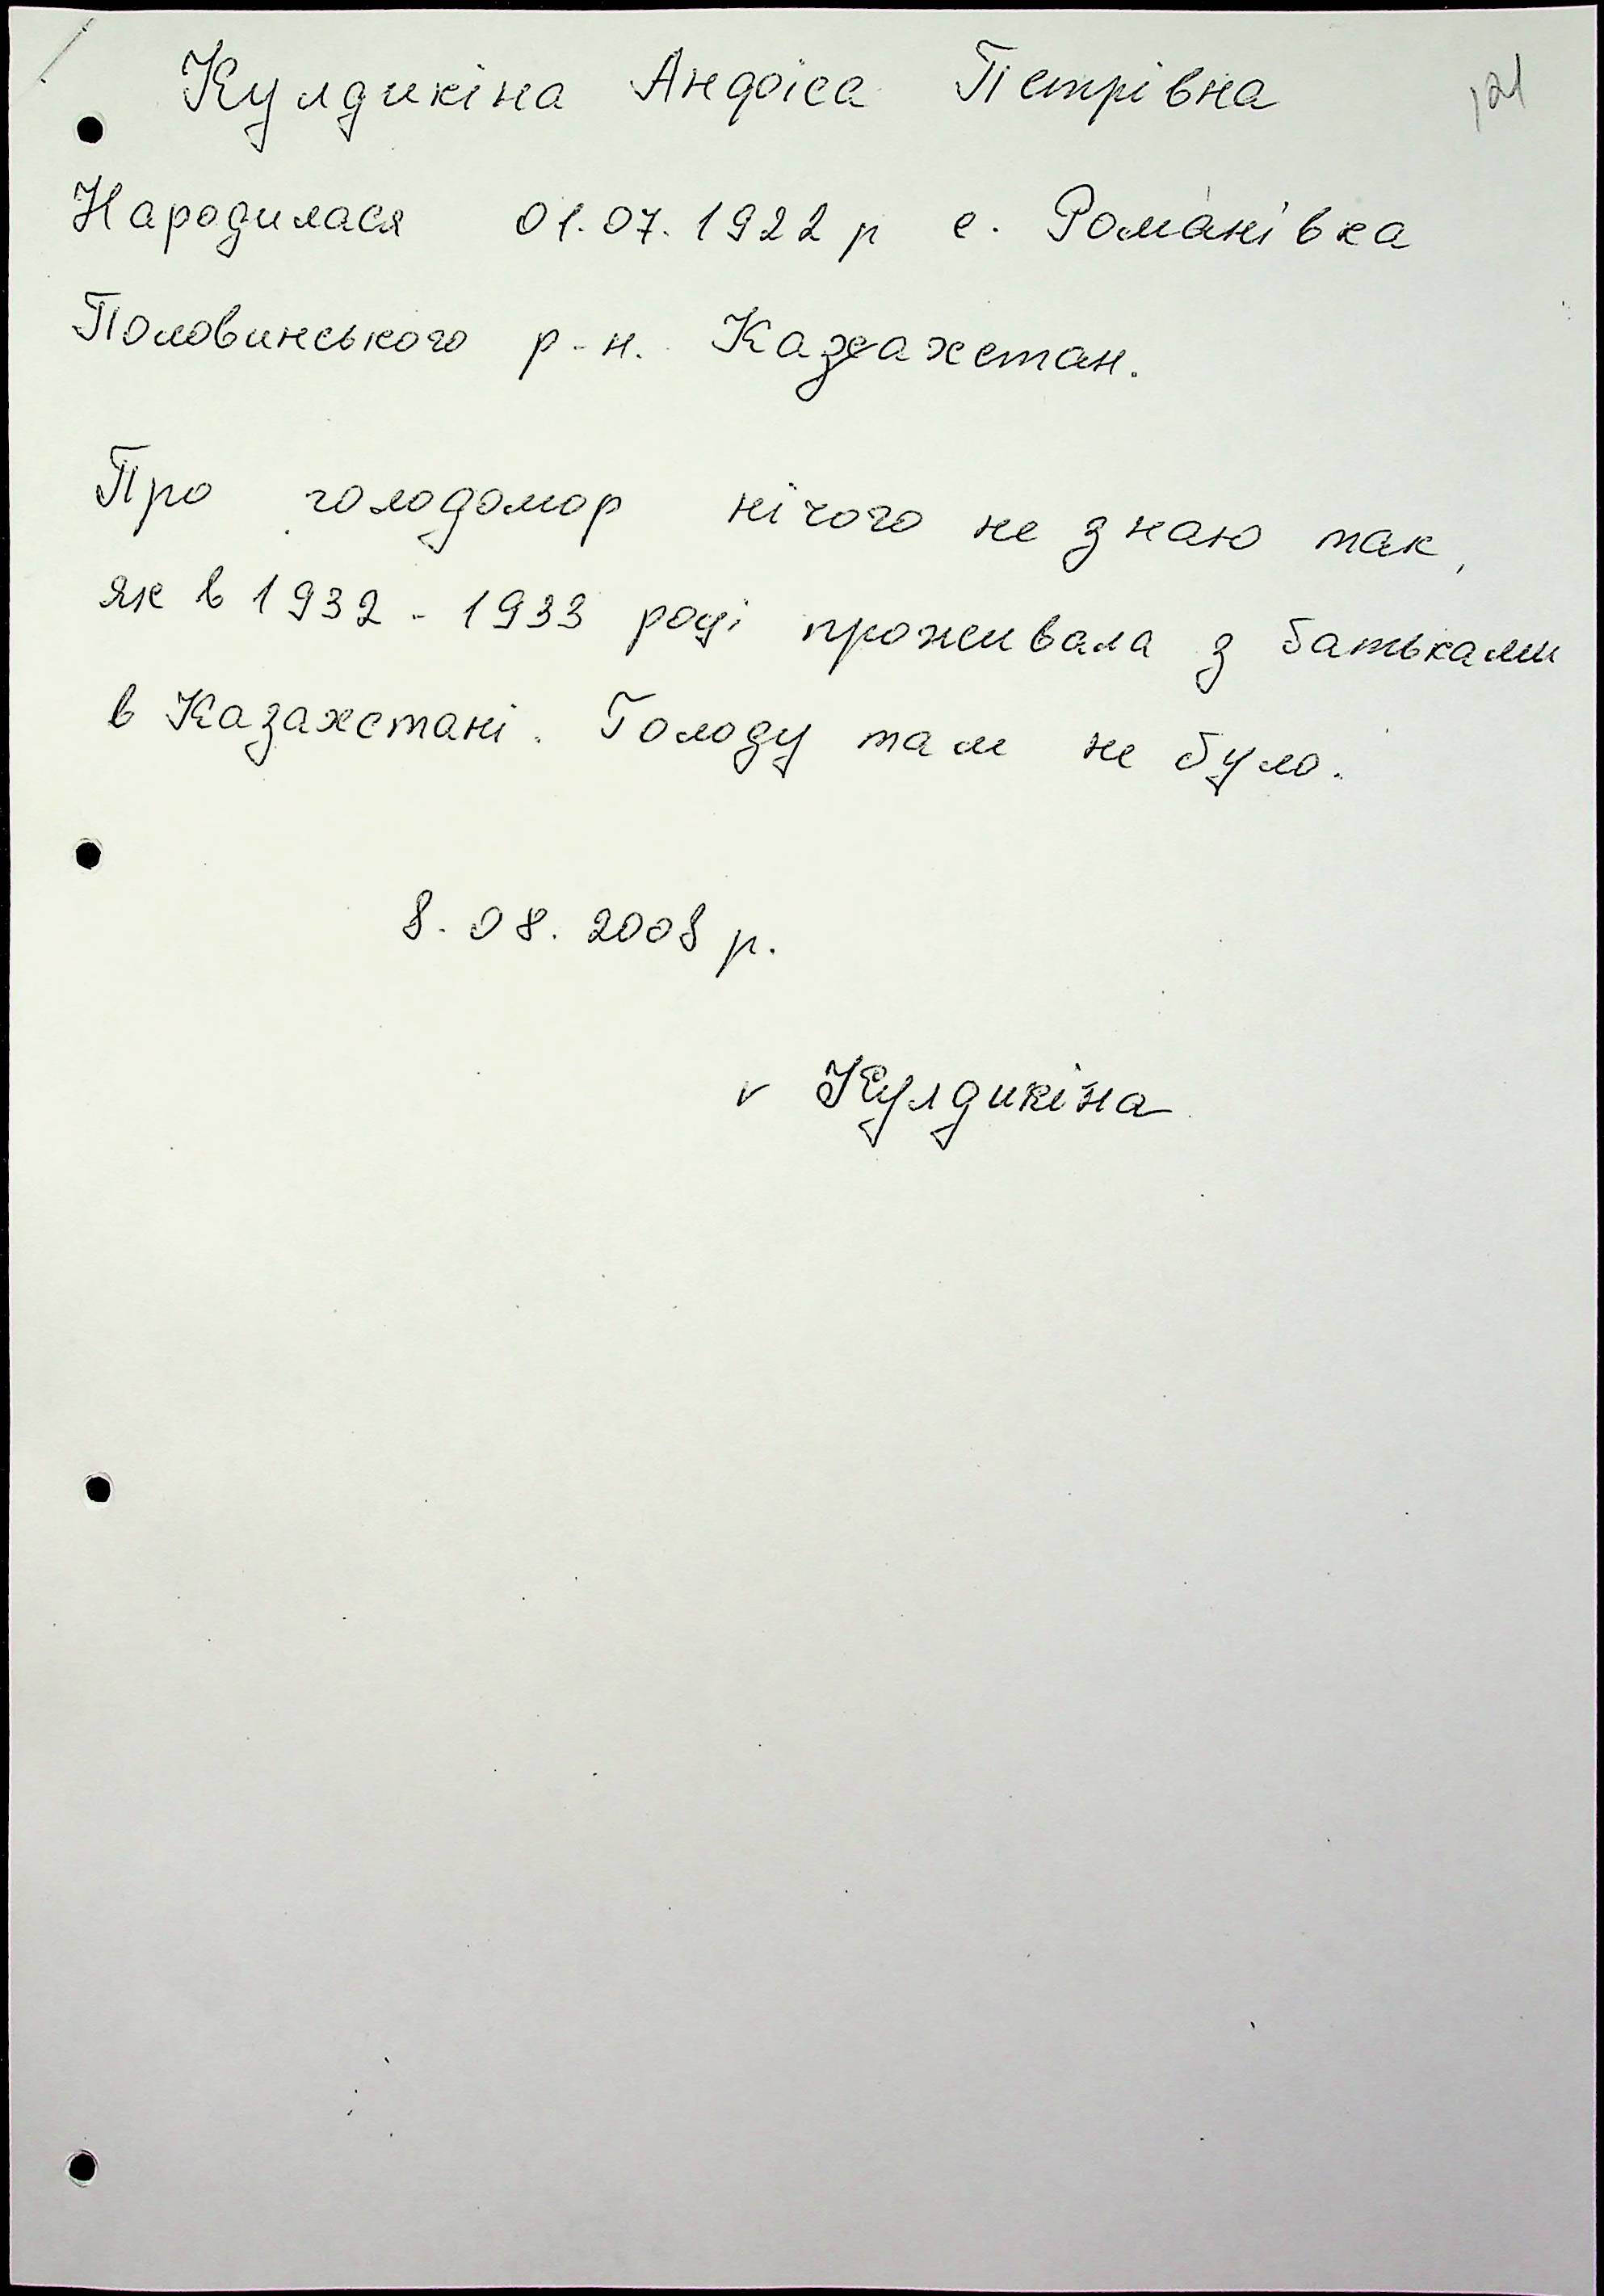 121
Кулдикіна Андріса Петрівна
Народилася 01.07.1922 р с. Романівка
Половинського р-н. Казахстан.
Про голодомор нічого не знаю так,
як в 1932 - 1933 році проживала з батьками
в Казахстані. Голоду там не було.
8.08.2008 р.
v Кулдикіна